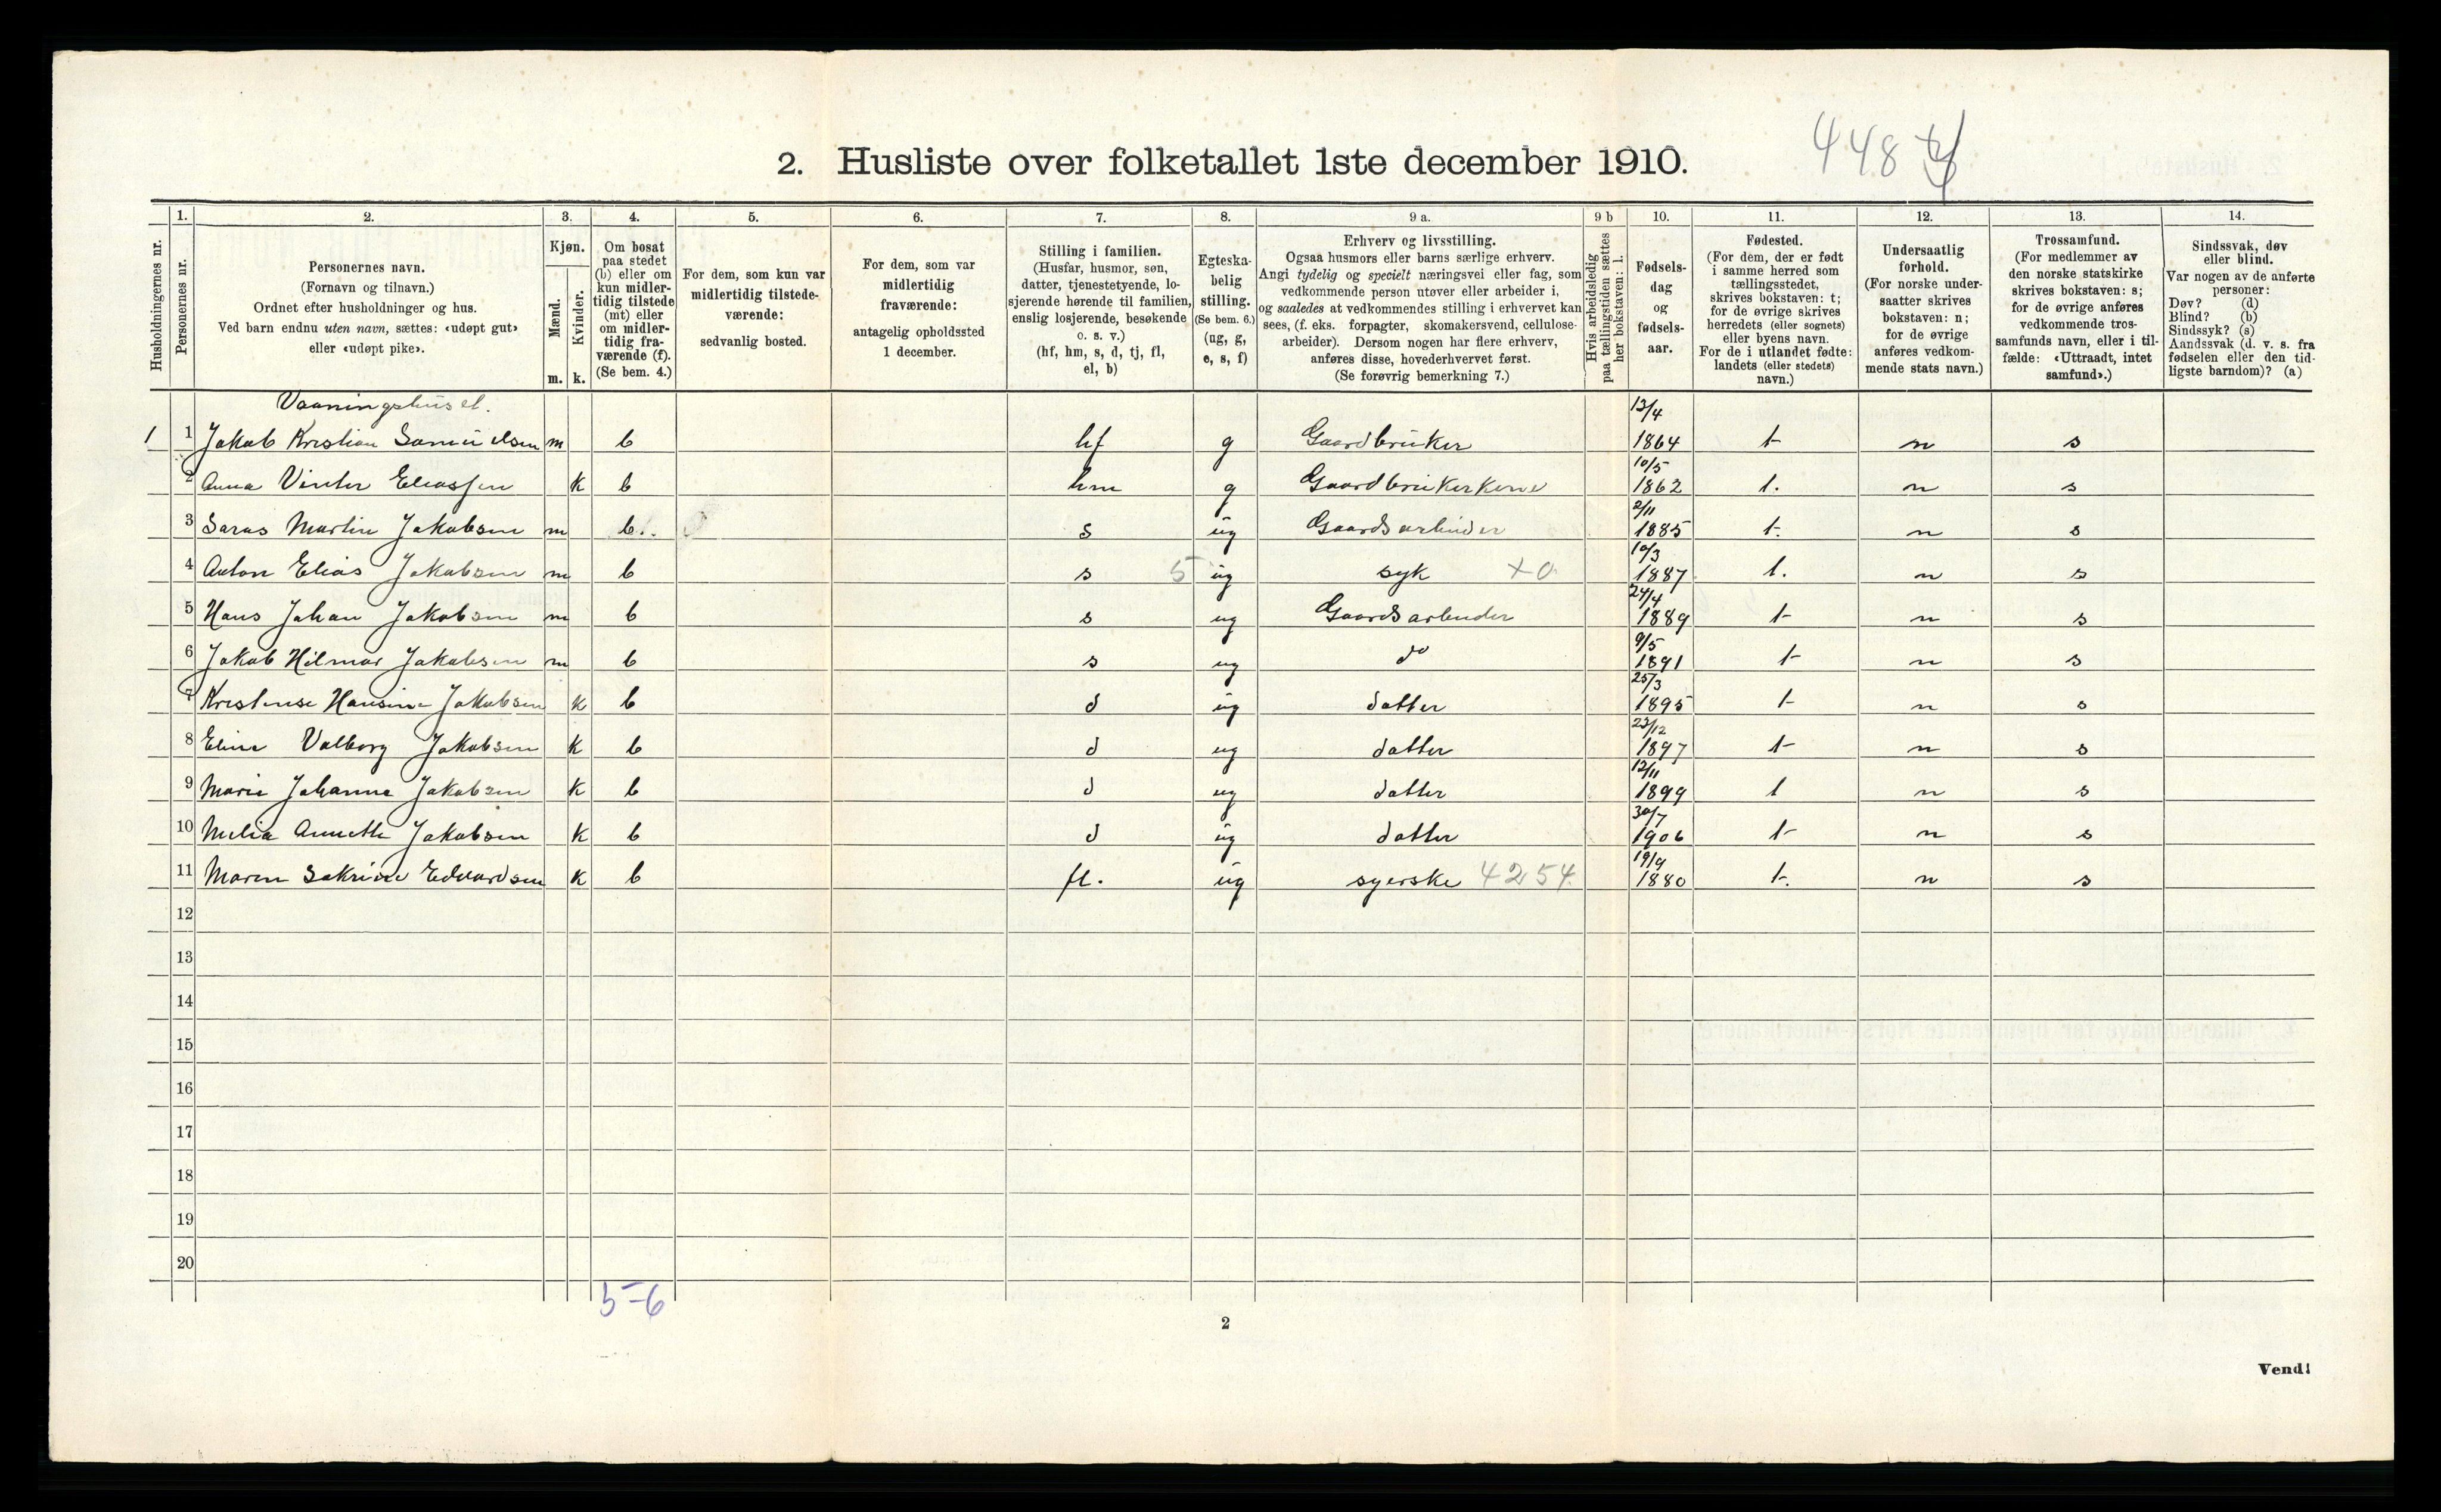 448
2. Husliste over folketallet 1ste december 1910.
Husholdningernes nr.
1.
Personernes nr.
2.
Personernes navn.
(Fornavn og tilnavn.)
Ordnet efter husholdninger og hus.
Ved barn endnu uten navn, sættes: «udøpt gut»
eller «udøpt pike».
3.
Kjøn.
Mænd.
Kvinder.
m. k.
4.
Om bosat
paa stedet
(b) eller om
kun midler-
tidig tilstede
(mt) eller
om midler-
tidig fra-
værende (f).
(Se bem. 4.)
5.
For dem, som kun var
midlertidig tilstede-
værende:
sedvanlig bosted.
6.
For dem, som var
midlertidig
fraværende:
antagelig opholdssted
1 december.
7.
Stilling i familien.
(Husfar, husmor, søn,
datter, tjenestetyende, lo-
sjerende hørende til familien,
enslig losjerende, besøkende
o. s. v.)
(hf, hm, s, d, tj, fl,
el, b)
8.
Egteska-
belig
stilling.
(Se bem. 6.)
(ug, g,
e, s, f)
9 a.
Erhverv og livsstilling.
Ogsaa husmors eller barns særlige erhverv.
Angi tydelig og specielt næringsvei eller fag, som
vedkommende person utøver eller arbeider i,
og saaledes at vedkommendes stilling i erhvervet kan
sees, (f. eks. forpagter, skomakersvend, cellulose-
arbeider). Dersom nogen har flere erhverv,
anføres disse, hovederhvervet først.
(Se forøvrig bemerkning 7.)
9 b
Hvis arbeidsledig
paa tællingstiden sættes
her bokstaven: l.
10.
Fødsels-
dag
og
fødsels-
aar.
11.
Fødested.
(For dem, der er født
i samme herred som
tællingsstedet,
skrives bokstaven: t;
for de øvrige skrives
herredets (eller sognets)
eller byens navn.
For de i utlandet fødte:
landets (eller stedets)
navn.)
12.
Undersaatlig
forhold.
(For norske under-
saatter skrives
bokstaven: n;
for de øvrige
anføres vedkom-
mende stats navn.)
13.
Trossamfund.
(For medlemmer av
den norske statskirke
skrives bokstaven: s;
for de øvrige anføres
vedkommende tros-
samfunds navn, eller i til-
fælde: «Uttraadt, intet
samfund».)
14.
Sindssvak, døv
eller blind.
Var nogen av de anførte
personer:
Døv? (d)
Blind? (b)
Sindssyk? (s)
Aandssvak (d. v. s. fra
fødselen eller den tid-
ligste barndom)? (a)
Vaaningshuset.
1 1 Jakob Kristian Samuelsen m b hf g Gaardbruker 13/4 1864 t n s
2 Anna Vinter Eliassen k b hm g Gaardbrukerkone 10/5 1862 t. n s
3 Martin Jakobsen m b. s ug Gaardsarbeider 2/11 1885 t. n s
4 Anton Elias Jakobsen m b s 5 ug syk +0 10/3 1887 t. n s
5 Hans Johan Jakobsen m b s ug Gaardsarbeider 24/4 1889 t n s
6 Jakob Hilmar Jakobsen m b s ug do 9/5 1891 t n s
7 Kristense Hansine Jakobsen k b d ug datter 25/3 1895 t n s
8 Eline Valborg Jakobsen k b d ug datter 23/12 1897 t n s
9 Marie Johanne Jakobsen k b d ug datter 12/11 1899 t n s
10 Melia Annette Jakobsen k b d ug datter 30/7 1906 t n s
11 Maren Sakrine Edvardsen k b fl. ug syerske 4254. 19/9 1880 t. n s
12
13
14
15
16
17
18
19
20
5-6
2
Vend!